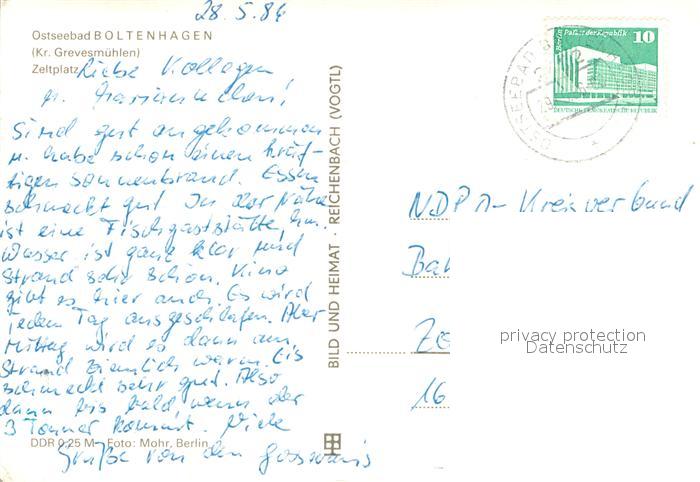 28.5.86
Ostseebad BOLTENHAGEN
(Kr. Grevesmühlen)
Zeltplatz
Liebe Kollegen
u.
Sind gut angekommen
u. habe schon einen kräf-
tigen Sonnenbrand. Essen
schmeckt gut In der Nähe
ist eine Fischgaststätte, hm.
Wasser ist ganz klar und
Strand sehr schön. Kino
gibt es hier auch. Es wird
jeden Tag ausgeschlafen. Aber
Mittag wird es dann am
Strand ziemlich warm. Eis
schmeckt sehr gut. Also
dann bis bald, wenn der
3 Tonner kommt. Viele
Grüße von den
DDR 0,25 M Foto: Mohr, Berlin
BILD UND HEIMAT · REICHENBACH (VOGTL)
Berlin Palast der Republik
10
DEUTSCHE DEMOKRATISCHE REPUBLIK
OSTSEEBAD
NDPD-Kreisverband
Ze
16
privacy protection
Datenschutz